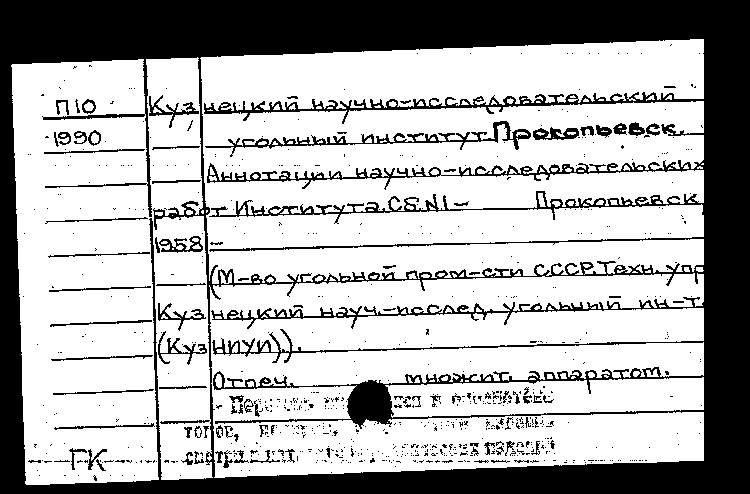 П10 Кузнецкий научно-исследовательский
1990 угольный институт. Прокопьевск.
Аннотации научно-исследовательских
работ Института. Сб. N1– Прокопьевск,
1958 –
(М-во угольной пром-сти СССР. Техн. упр
Кузнецкий науч.-исслед. угольный ин-т.
(КузНИУИ)).
Отпеч. множит. аппаратом.
в библиотеке
ГК